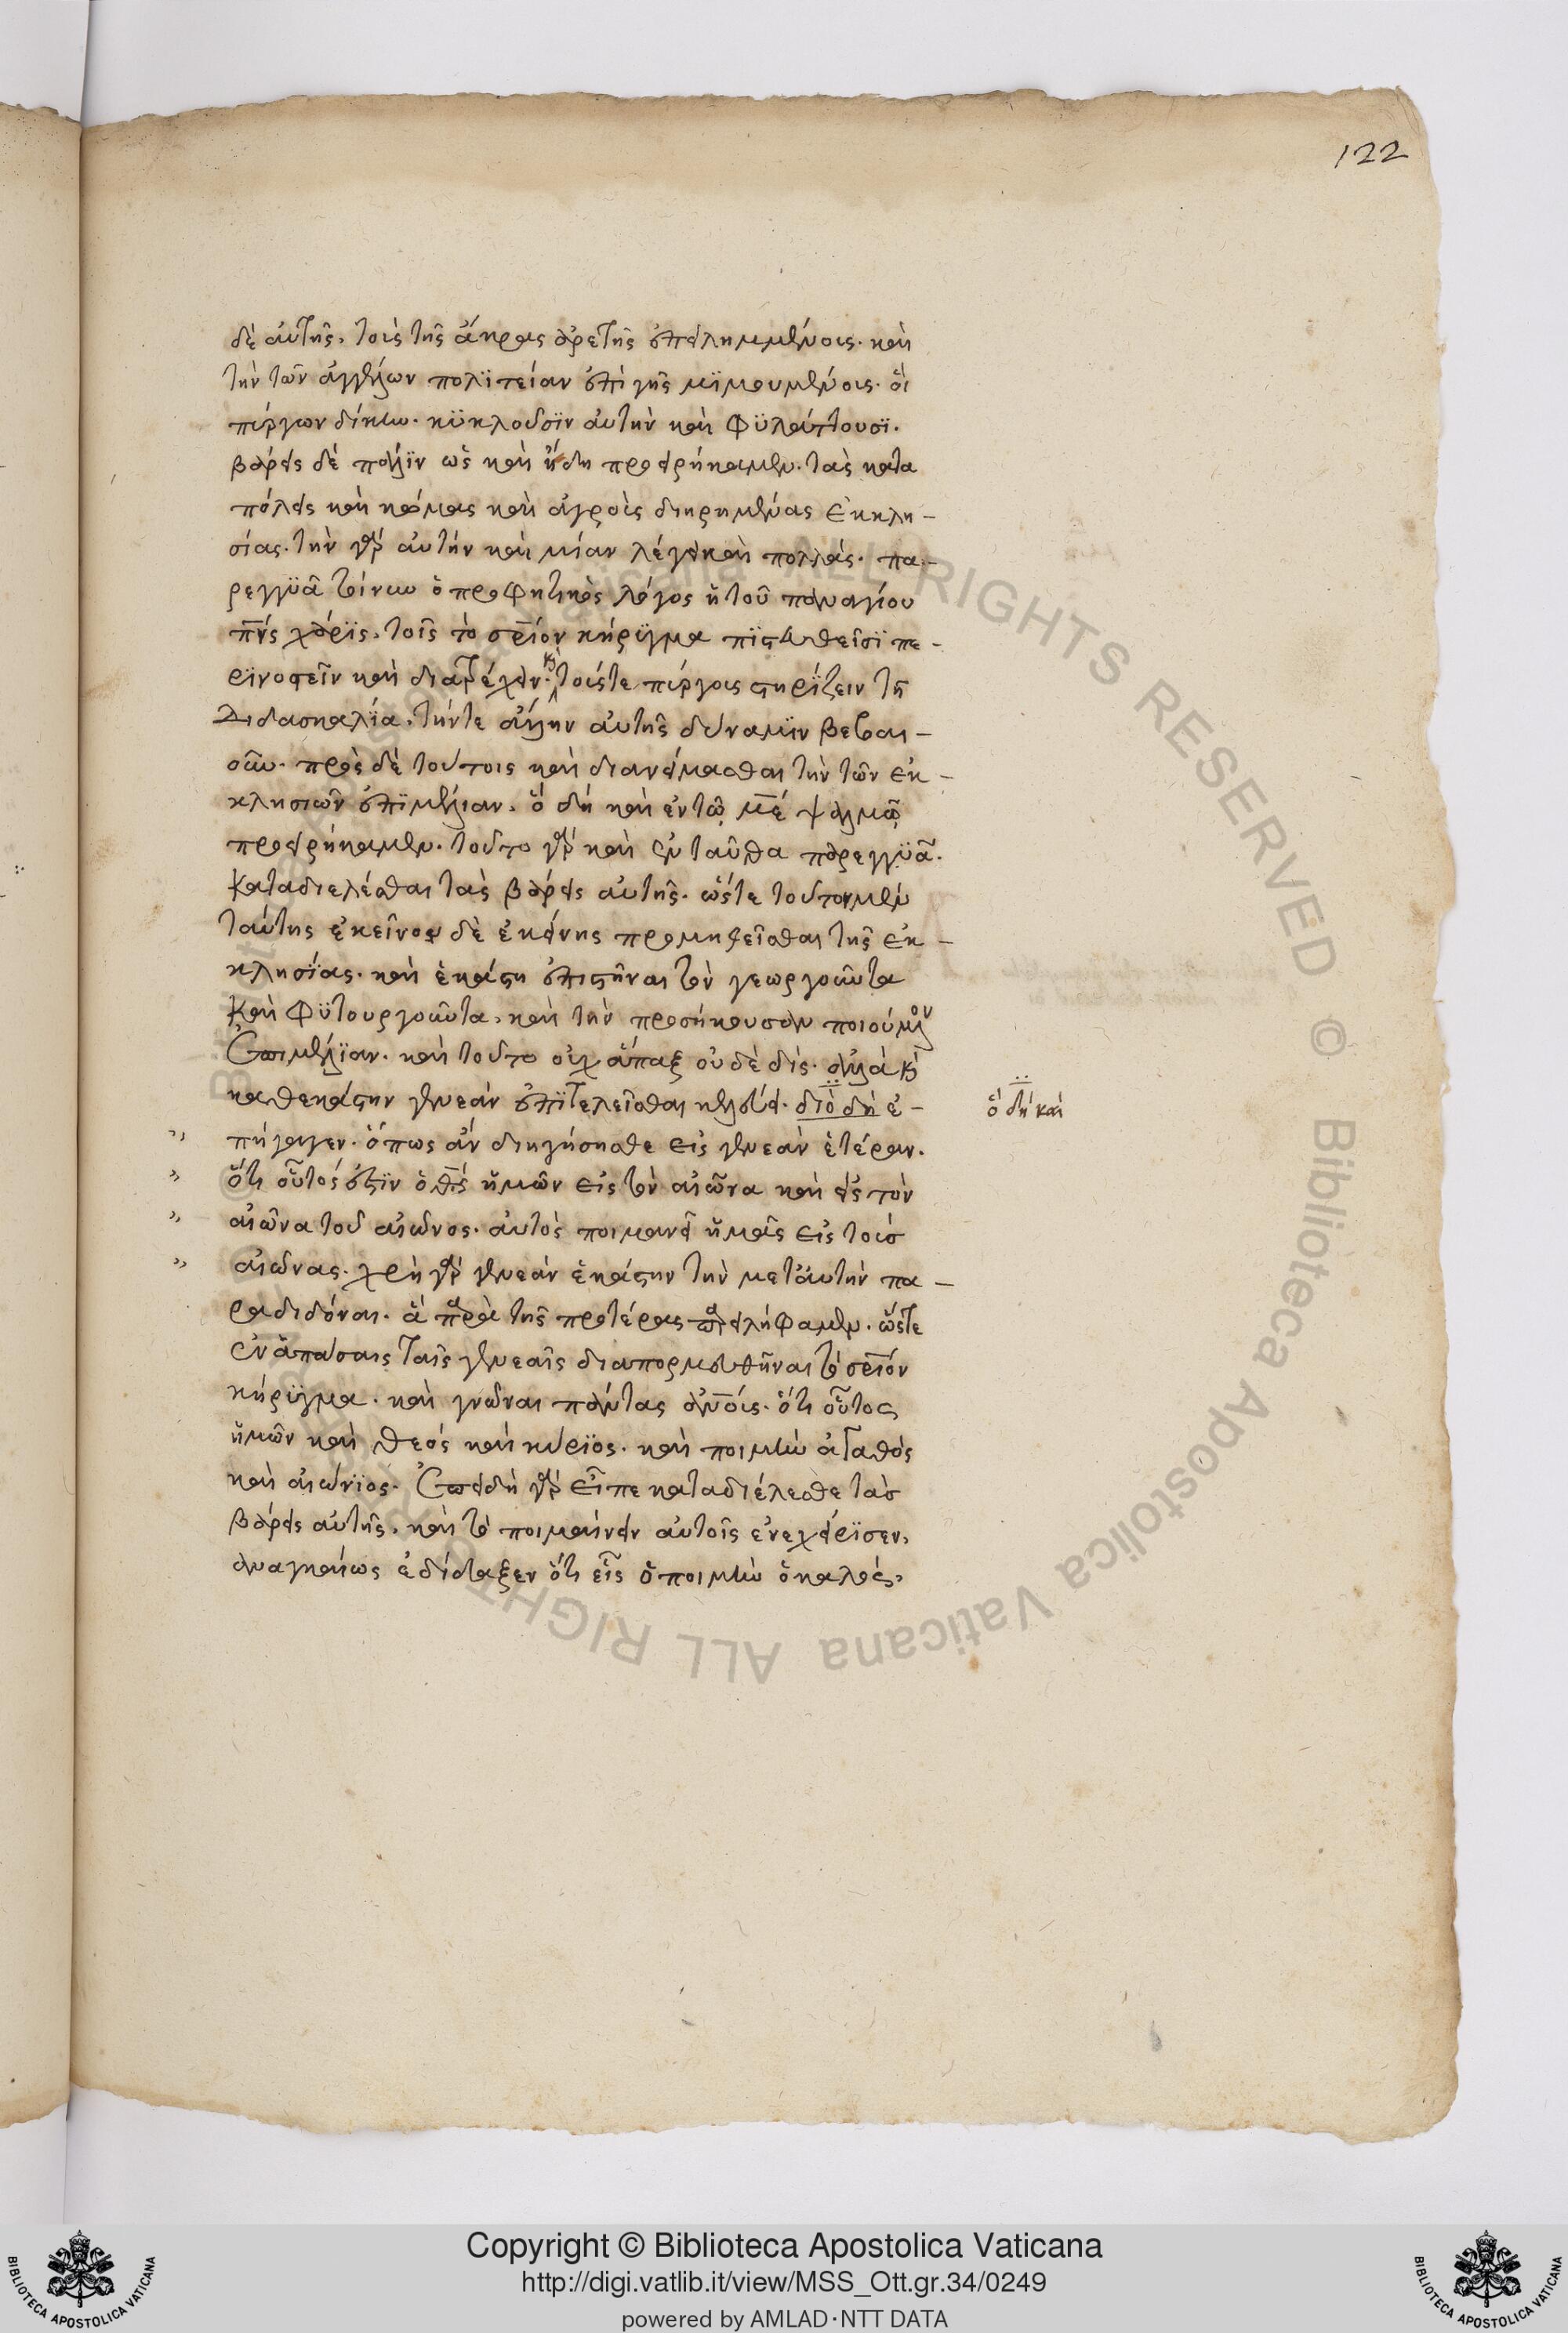 122
δὲ αὐτῆς, τοῖς τῆς ἄκρας ἀρετῆς ἐπειλημμένοις. καὶ
τὴν τῶν ἀγγέλων πολϊτείαν ἐπὶ γῆς μϊμουμένοις. οἳ
πύργων δίκην. κϋκλοῦσϊν αὐτὴν καὶ φϋλάττουσϊ.
βάρεις δὲ πάλϊν ὡς καὶ ἤδη προειρήκαμεν. τὰς κατα
πόλεις καὶ κώμας καὶ ἀγροὺς διηρημένας ἐκκλη-
σίας. τὴν γὰρ αὐτὴν καὶ μίαν λέγει καὶ πολλάς. πα-
ρεγγϋᾶ τοίνυν ὁ προφητικὸς λόγος ἢ τοῦ παναγίου
πν̅ς χάρϊς, τοῖς τὸ σρ̅ιον κήρϋγμα πϊστευθεῖσϊ πε-
ρϊνοστεῖν καὶ διατρέχειν. κ τούς τε πύργους στηρΐζειν τῆ
Διδασκαλΐα, τήν τε ἄλλην αὐτῆς δύναμϊν βεβαι-
οῦν. πρὸς δὲ τούτοις καὶ διανείμασθαι τὴν τῶν ἐκ-
κλησιῶν ἐπϊμέλειαν. ὃ δὴ καὶ ἐν τῶ με̅ ψαλμῶ
προειρήκαμεν. τοῦτο γὰρ καὶ ἐνταῦθα παρεγγϋᾶ.
καταδιελέσθαι τὰς βάρεις αὐτῆς. ὥστε τοῦτον μὲν
ταύτης ἐκεῖνον δὲ ἐκείνης προμηθεῖσθαι τῆς ἐκ-
κλησΐας. καὶ ἑκάστη ἐπιστῆναι τὸν γεωργοῦντα
καὶ φϋτουργοῦντα, καὶ τὴν προσήκουσαν ποιούμενον
ἐπιμέλϊαν. καὶ τοῦτο οὐχ ἅπαξ οὐδὲ δὶς. ἀλλὰ κ
καθεκάστην γενεὰν ἐπϊτελεῖσθαι κελεύει. διὸ δὴ ἐ-
ὃ δὴ καὶ
πήγαγεν. ὅπως ἂν διηγήσησθε εἰς γενεὰν ἑτέραν.
ὅτι οὗτός ἐστϊν ὁ θς̅ ἡμῶν εἰς τὸν αἰῶνα καὶ εἰς τὸν
αἰῶνα τοῦ αἰῶνος. αὐτὸς ποιμανεῖ ἡμᾶς εἰς τοὺσ
αἰῶνας. χρὴ γὰρ γενεὰν ἑκάστην τὴν μετ' αὐτὴν πα-
ραδιδόναι. ἃ παρὰ τῆς προτέρας παρειλήφαμεν. ὥστε
ἐν ἁπάσαις ταῖς γενεαῖς διαπορμευθῆναι τὸ σρ̅ιόν
κήρϋγμα. καὶ γνῶναι πάντας ἀν̅ους. ὅτι οὗτος
ἡμῶν καὶ θεός καὶ κύρϊος. καὶ ποιμὴν ἀγαθὸς
καὶ αἰώνϊος. ἐπειδὴ γὰρ εἶπε καταδιέλεσθε τὰσ
βάρεις αὐτῆς, καὶ τὸ ποιμαίνειν αὐτοῖς ἐνεχείρϊσεν,
ἀναγκαίως ἐδίδαξεν ὅτι εἷς ὁ ποιμὴν ὁ καλός,
Copyright © Biblioteca Apostolica Vaticana
http://digi.vatlib.it/view/MSS_Ott.gr.34/0249
powered by AMLAD·NTT DATA
BIBLIOTECA APOSTOLICA VATICANA
BIBLIOTECA APOSTOLICA VATICANA